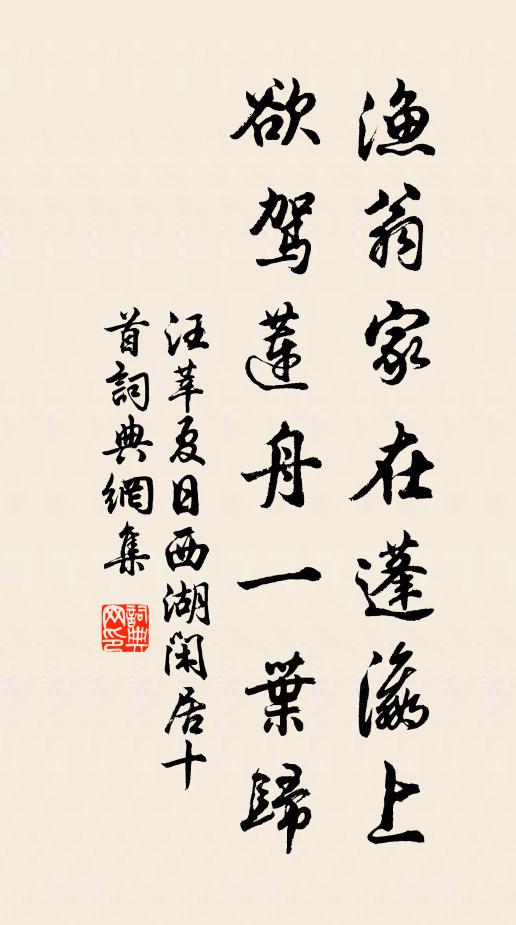 漁翁家在蓬瀛上
欲駕蓮舟一葉歸
汪莘夏日西湖閑居十
首詞典網集
詞典網印